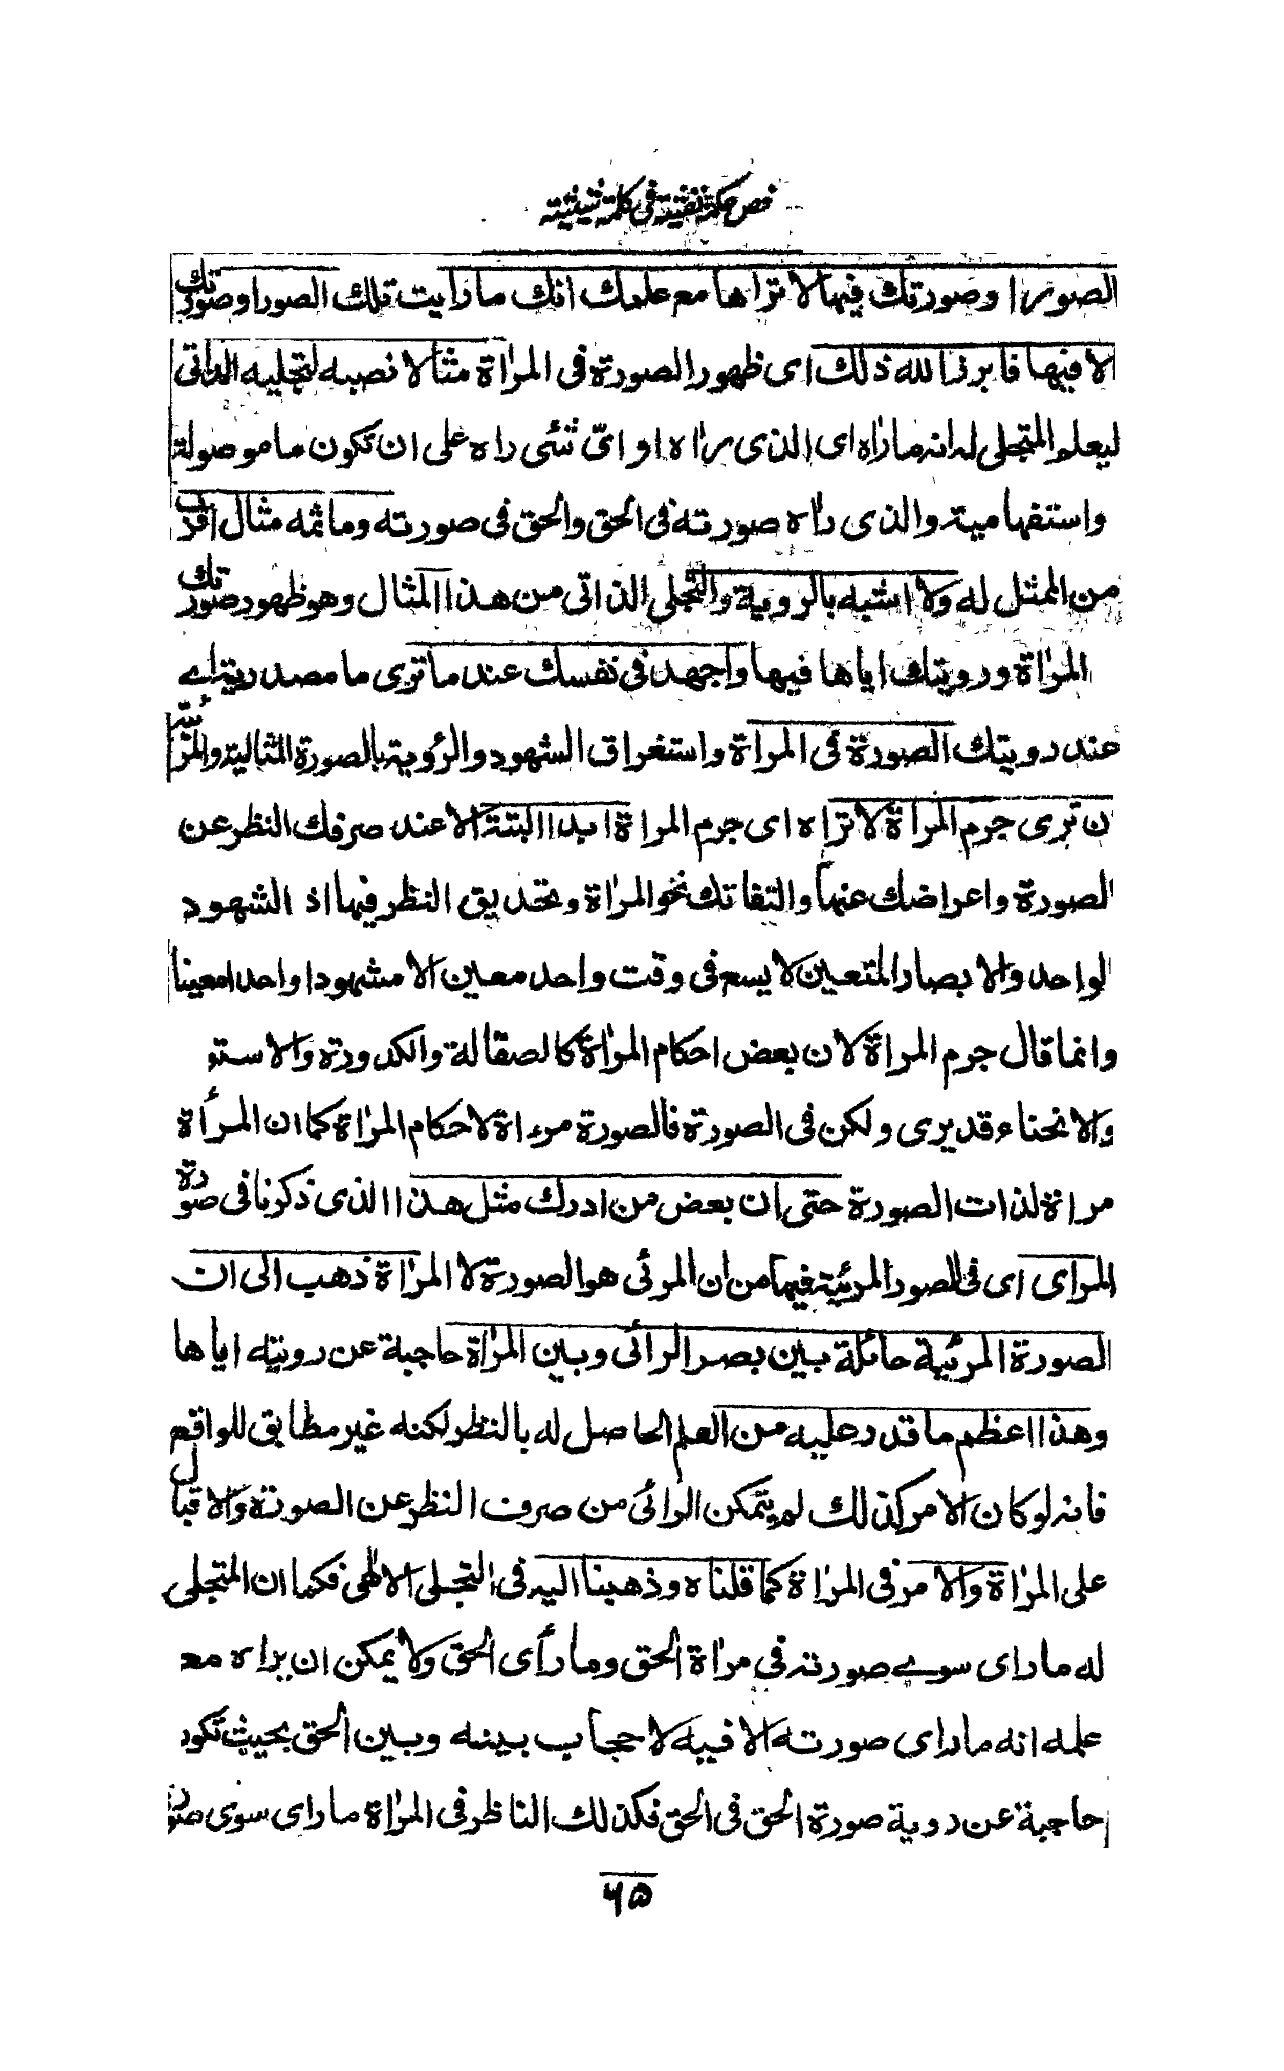 فص حكمة نفثية فى كلمة شيثية
الصور او صورتك فيها لا تراها مع علمك انك ما رايت تلك الصور او صورتك
الا فيها فابرز الله ذلك اى ظهور الصورة فى المرٰاة مثالا نصبه لتجليه الذاتى
ليعلم المتجلى له انه ما رٰاه اى الذى رٰاه او اىّ شئى راه على ان تكون ما موصولة
واستفهامية والذى رٰاه صورته فى الحق والحق فى صورته وما ثمه مثال اقرب
من الممثل له ولا اشبه بالروية والتجلى الذاتى من هذا المثال وهو ظهور صورتك
المرٰاة ورويتك اياها فيها واجهد فى نفسك عند ما ترى ما مصدرية اے
عند رويتك الصورة فى المراة واستغراق الشهود والرؤية بالصورة المثالية والمرٰئية
ن ترى جرم المراة لا تراه اى جرم المراة ابدا البتة الا عند صرفك النظر عن
لصورة واعراضك عنها والتفاتك نحو المرٰاة وتحديق النظر فيها اذ الشهود
لواحد والابصار المتعين لا يسع فى وقت واحد معين الا مشهودا واحدا معينا
وانما قال جرم المراة لان بعض احكام المرٰاة كالصقالة والكدورة والاستو
والانحناء قد يرى ولكن فى الصورة فالصورة مرءاة لاحكام المرٰاة كما ان المرأة
مراة لذات الصورة حتى ان بعض من ادرك مثل هذا الذى ذكرنا فى صورة
المراى اى فى الصور المرئية فيها من ان المرئى هو الصورة لا المرٰاة ذهب الى ان
الصورة المرئية حائلة بين بصر الرائى وبين المرٰاة حاجبة عن رويته اياها
وهذا اعظم ما قدر عليه من العلم الحاصل له بالنظر لكنه غير مطابق للواقع
فانه لو كان الامر كذلك لم يتمكن الرائى من صرف النظر عن الصورة والاقبال
على المرٰاة والامر فى المرٰاة كما قلناه وذهبنا اليه فى التجلى الالٰهى فكما ان المتجلى
له ما راى سوے صورته فى مراة الحق وما رأى الحق ولا يمكن ان يراه مع
علمه انه ما راى صورته الا فيه لا حجاب بينه وبين الحق بحيث تكون
حاجبة عن روية صورة الحق فى الحق فكذلك الناظر فى المرٰاة ما راى سوى صورة
٦٥